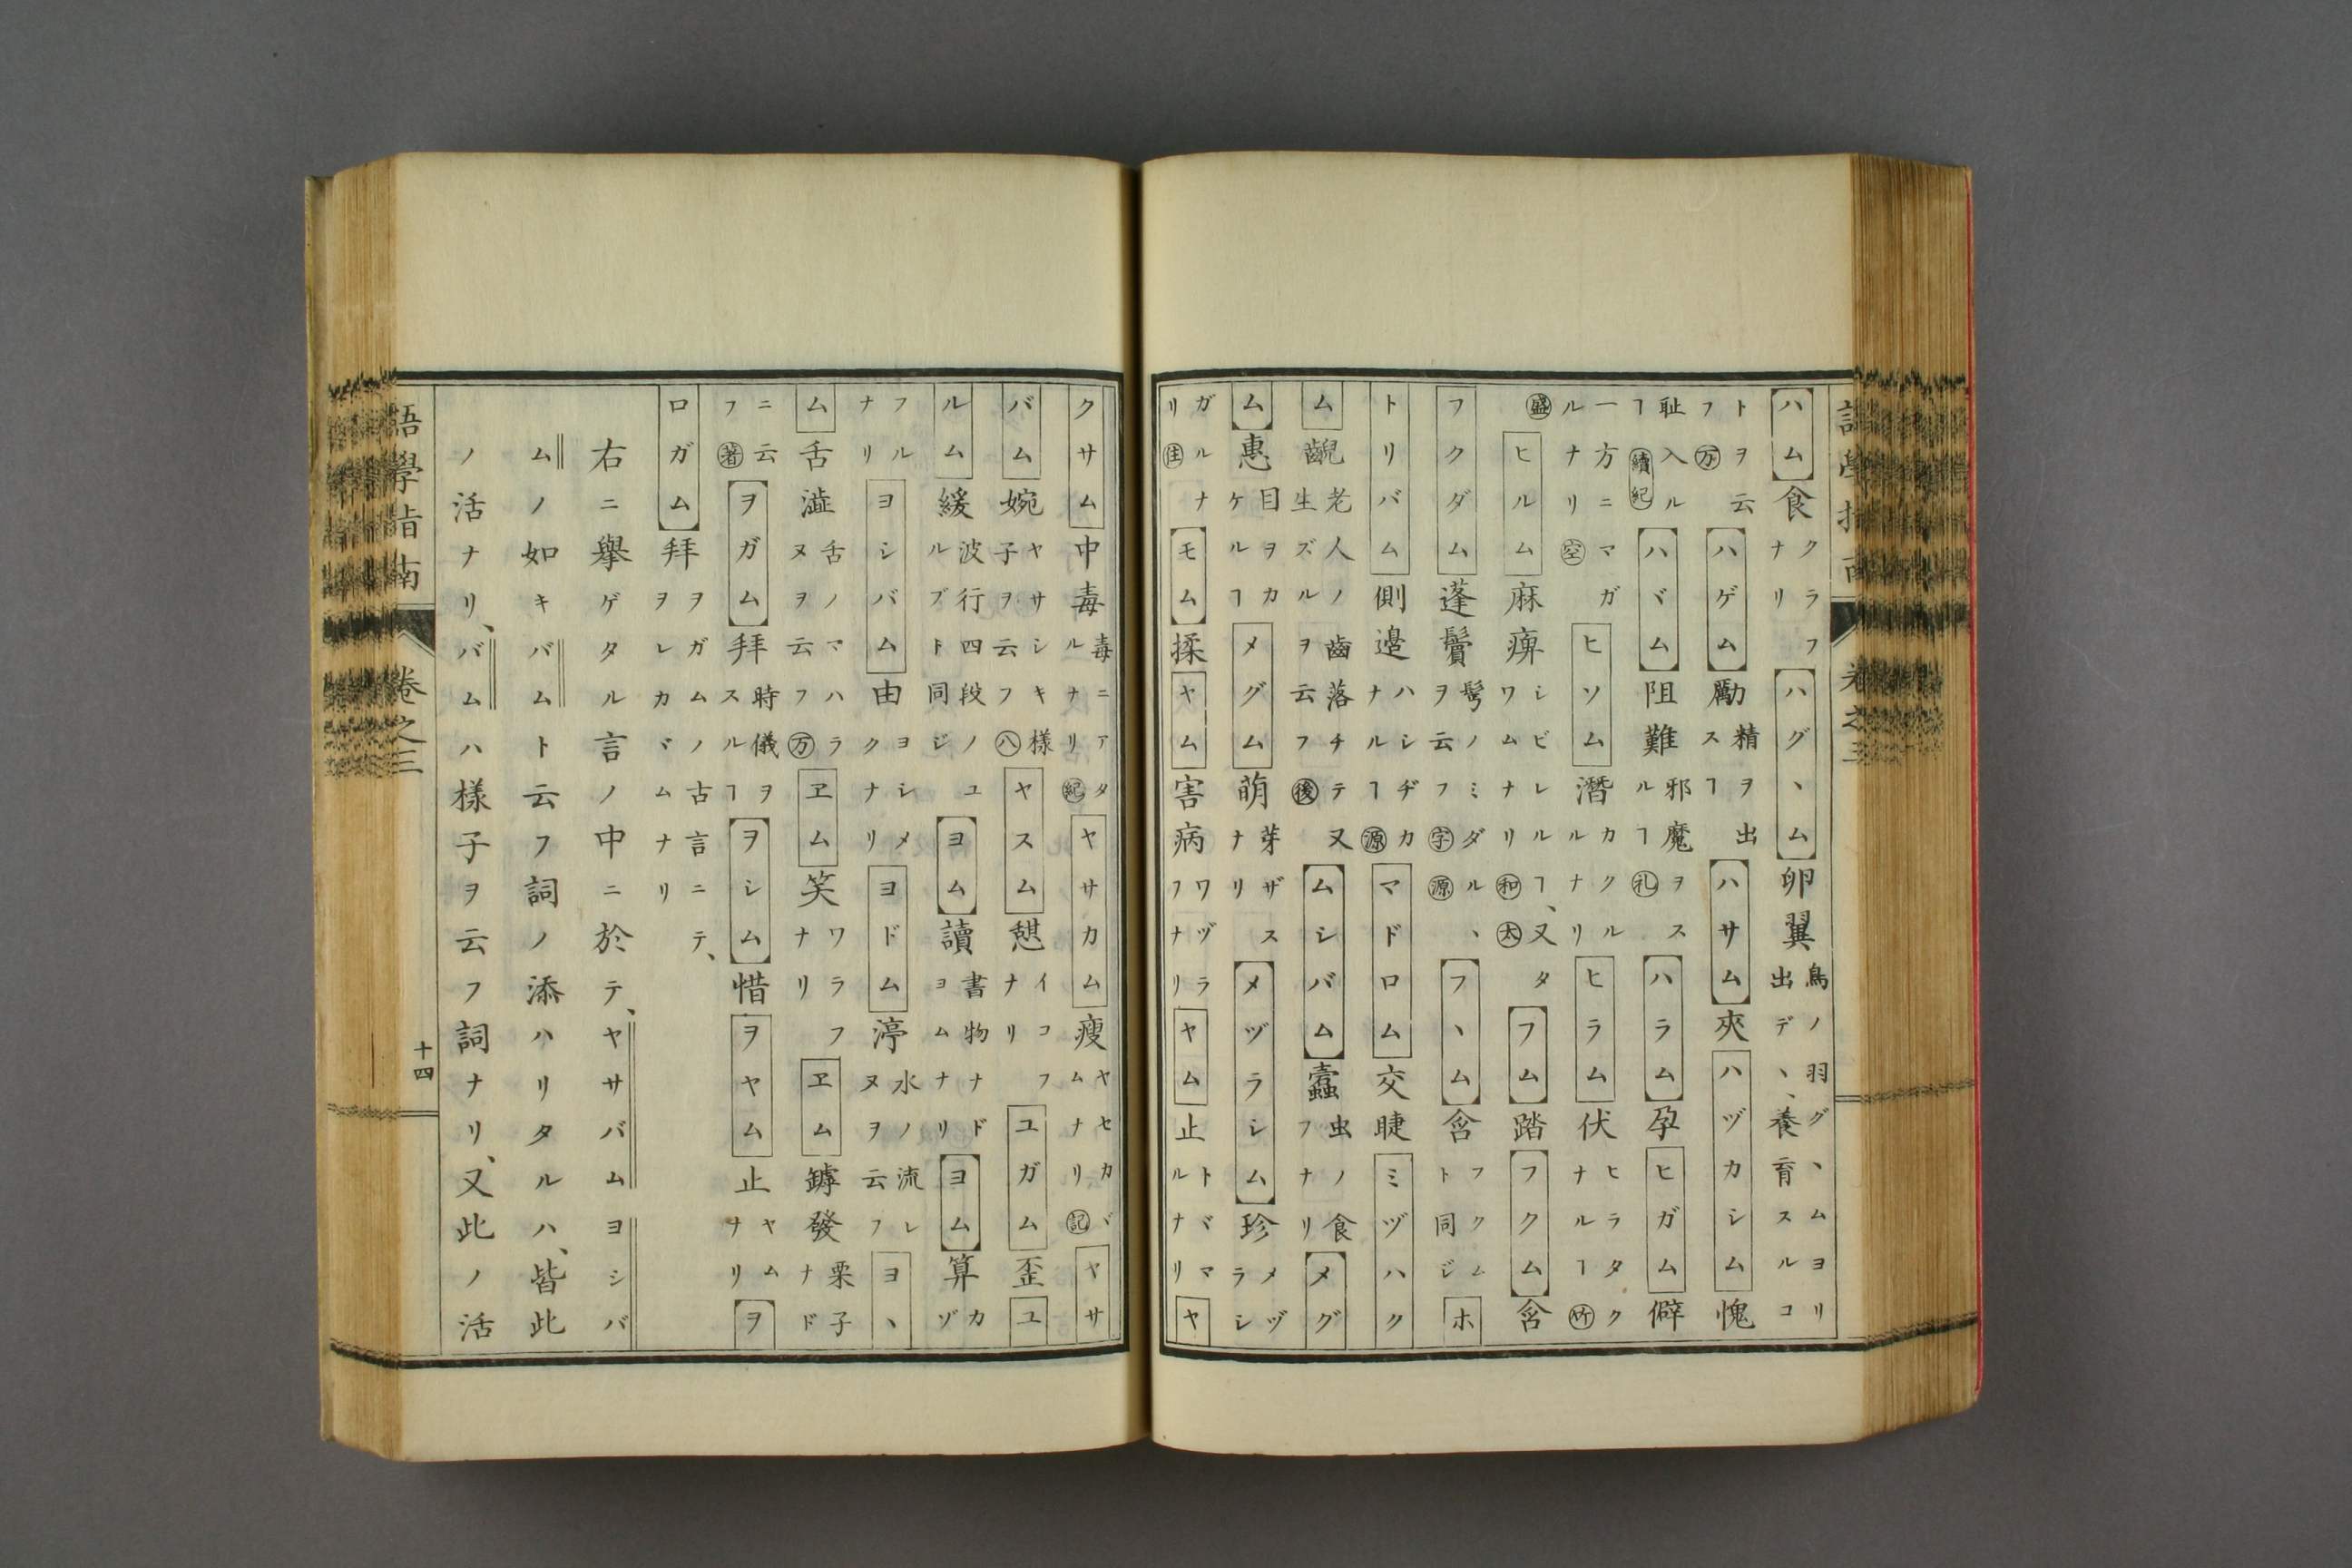 語學指南 卷之三
ハム食クラフナリハグヽム卵翼鳥ノ羽グヽムヨリ出デヽ、養育スルコ
トヲ云フ万ハゲム勵精ヲ出スヿハサム夾ハヅカシム愧
耻入ルヿ續紀ハヾム阻難邪魔ヲスルヿ礼ハラム孕ヒガム僻
一方ニマガルナリ空ヒソム潛カクルルナリヒラム伏ヒラタクナルヿ竹
盛ヒルム麻痺シビレルヿ、又タワムナリ和太フム踏フクム含
フクダム蓬鬢髩ノミダルヽヲ云フ字源フヽム含フクムト同ジホ
トリバム側邉ハシヂカナルヿ源マドロム交睫ミヅハク
ム齯老人ノ齒落チテ又生ズルヲ云フ後ムシバム蠹虫ノ食フナリメグ
ム惠目ヲカケルヿメグム萌芽ザスナリメヅラシム珍メヅラシ
ガルナリ住モム揉ヤム害病ワヅラフナリヤム止トバマルナリヤ
クサム中毒毒ニアタルナリ紀ヤサカム瘦ヤセカヾムナリ記ヤサ
バム婉ヤサシキ様子ヲ云フ八ヤスム憇イコフナリユガム歪ユ
ルム緩波行四段ノユルブト同ジヨム讀書物ナドヨムナリヨム算カゾ
フルナリヨシバム由ヨシメクナリヨドム渟水ノ流レヌヲ云フヨヽ
ム舌澁舌ノマハラヌヲ云フ万ヱム笑ワラフナリヱム罅發栗子ナド
ニ云フ著ヲガム拜時儀ヲスルヿヲシム惜ヲヤム止ヤムナリヲ
ロガム拜ヲガムノ古言ニテ、ヲレカヾムナリ
右ニ擧ゲタル言ノ中ニ於テ、ヤサバムヨシバ
ムノ如キバムト云フ詞ノ添ハリタルハ、皆此
ノ活ナリ、バムハ様子ヲ云フ詞ナリ、又此ノ活
語學指南 卷之三 十四